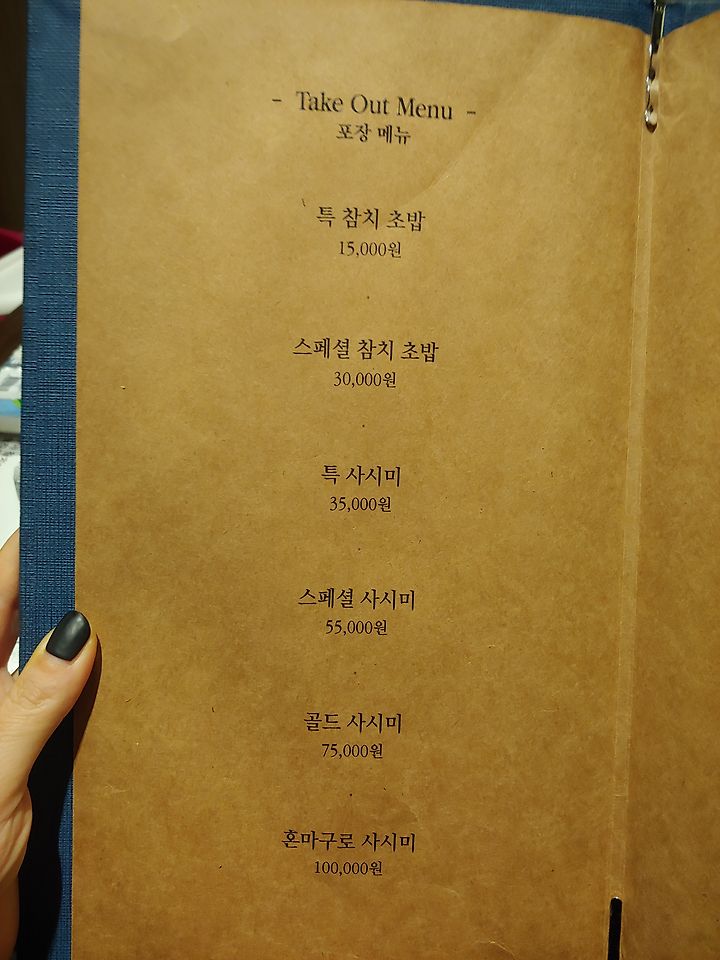 - Take Out Menu -
포장 메뉴
특 참치 초밥
15,000원
스페셜 참치 초밥
30,000원
특 사시미
35,000원
스페셜 사시미
55,000원
골드 사시미
75,000원
혼마구로 사시미
100,000원